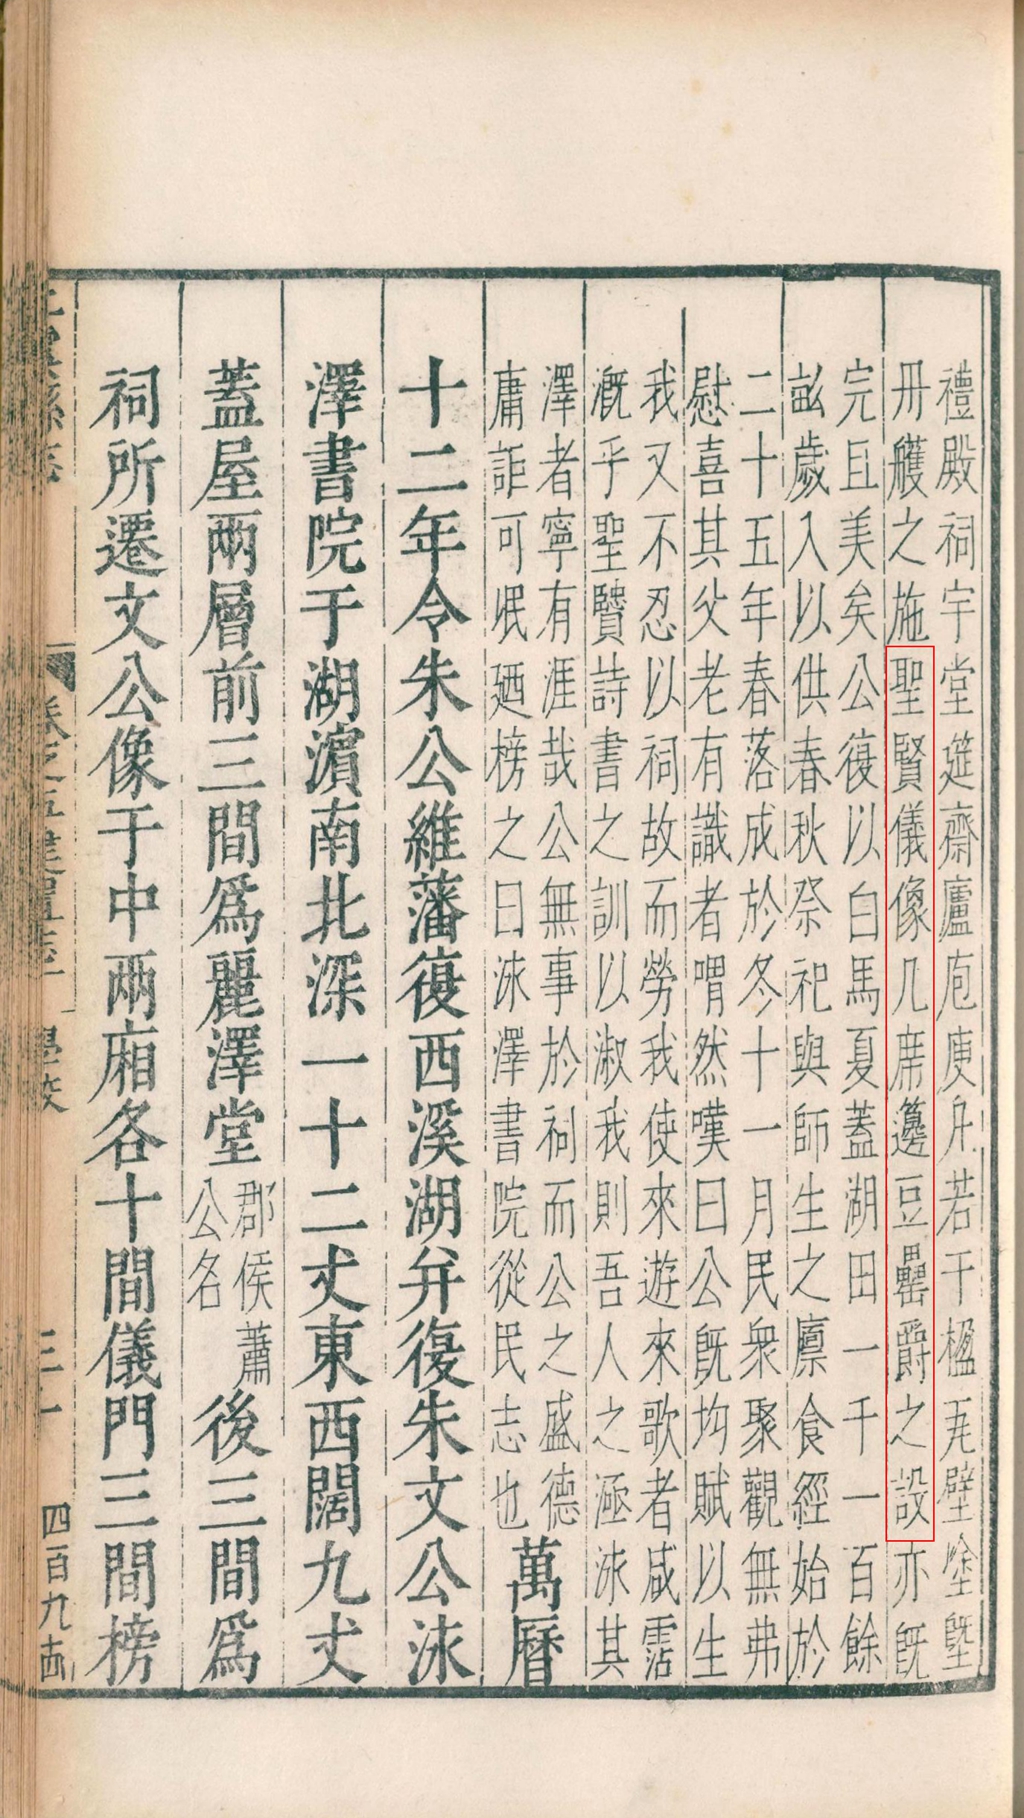 禮殿祠宇堂筵齋廬庖庾凡若干楹瓦壁塗墍
丹艧之施聖賢儀像几席籩豆罍爵之設亦旣
完且美矣公復以白馬夏蓋湖田一千一百餘
畝歲入以供春秋祭祀與師生之廪食經始於
二十五年春落成於冬十一月民衆聚觀無弗
慰喜其父老有識者喟然嘆曰公旣均賦以生
我又不忍以祠故而勞我使來遊來歌者咸霑
漑乎聖賢詩書之訓以淑我則吾人之極沭其
澤者寧有涯哉公無事於祠而公之盛德
庸詎可泯廼榜之曰沭澤書院從民志也
萬曆
十二年令朱公維藩復西溪湖并復朱文公沭
澤書院于湖濵南北深一十二丈東西闊九丈
蓋屋兩層前三間爲麗澤堂
郡侯蕭
公名
後三間爲
祠所遷文公像于中兩廂各十間儀門三間榜
卷之五建置志一
學校
四百九